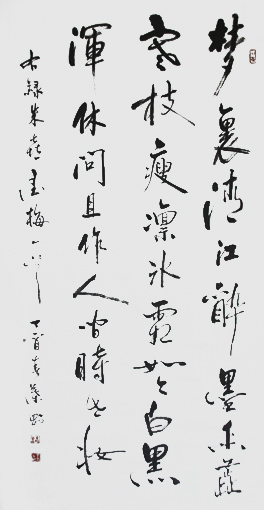 梦裏清江醉墨香蕊
寒枝瘦凛冰霜如今白黑
渾休問且作人間時世妝
右録朱熹墨梅一